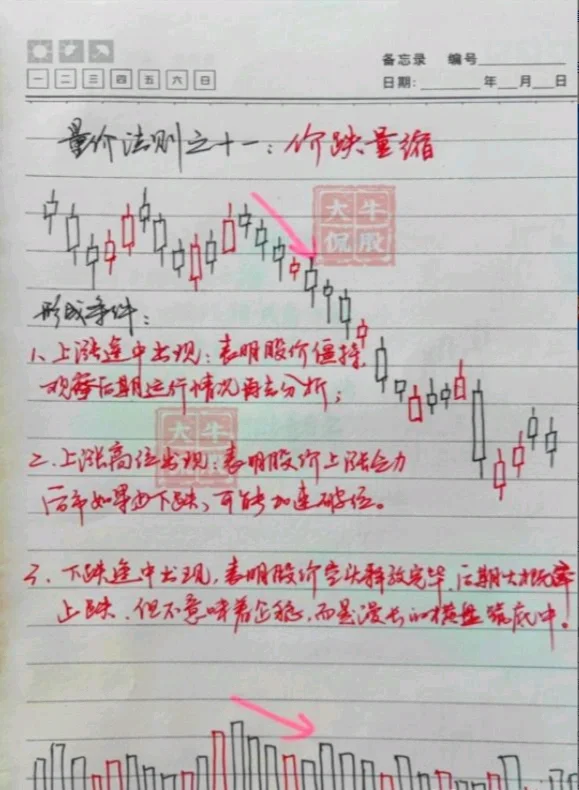 备忘录 编号
一 二 三 四 五 六 日
日期: 年 月 日
量价法则之十一：价跌量缩
大牛
侃股
形成条件：
1、上涨途中出现：表明股价僵持
观察后期运行情况再去分析；
大牛
2、上涨高位出现：表明股价上涨乏力
后市如果出下跌、可能加速破位。
3、下跌途中出现，表明股价空头释放完毕、后期大概率
止跌、但不意味着企稳，而是漫长的横盘筑底中！